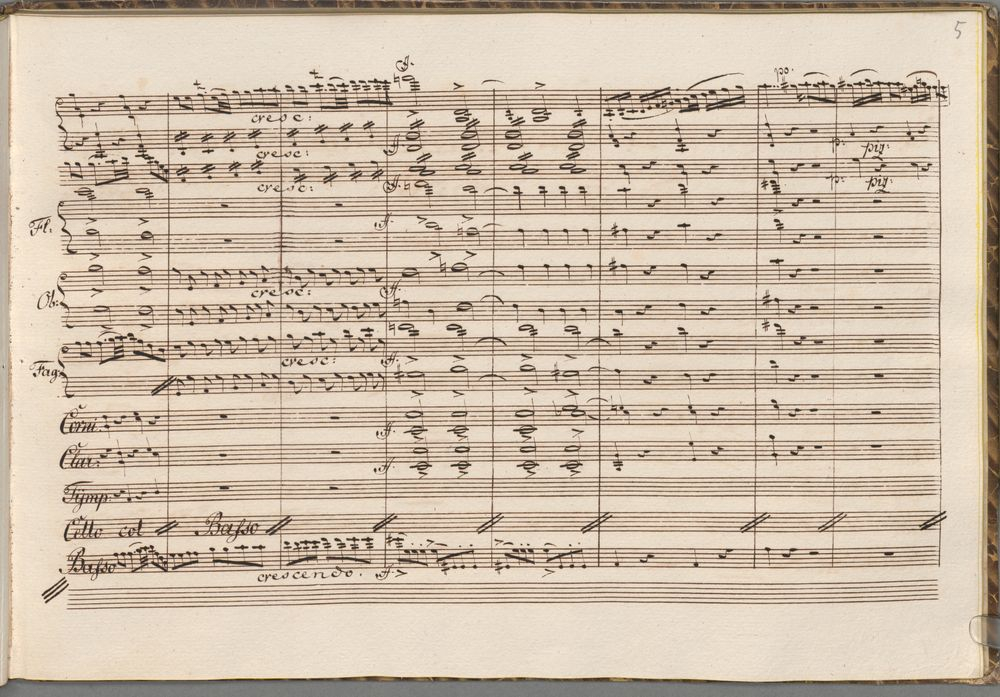 5
ff.
po.
cresc:
cresc:
ff.
p:
piz:
cresc:
ff.
p:
piz:
Fl:
ff.
Ob:
cresc:
ff.
cresc:
ff.
Fag:
Corni.
ff.
Clar:
ff.
Tÿmp:
Cello col Basso
Basso
crescendo. ff.